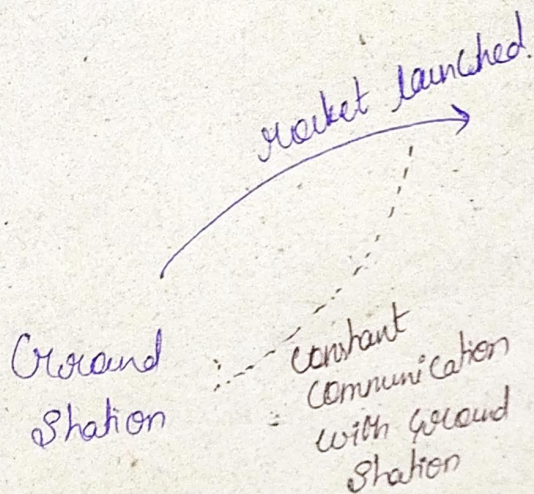 rocket launched.
Ground
Station
constant
communication
with Ground
Station